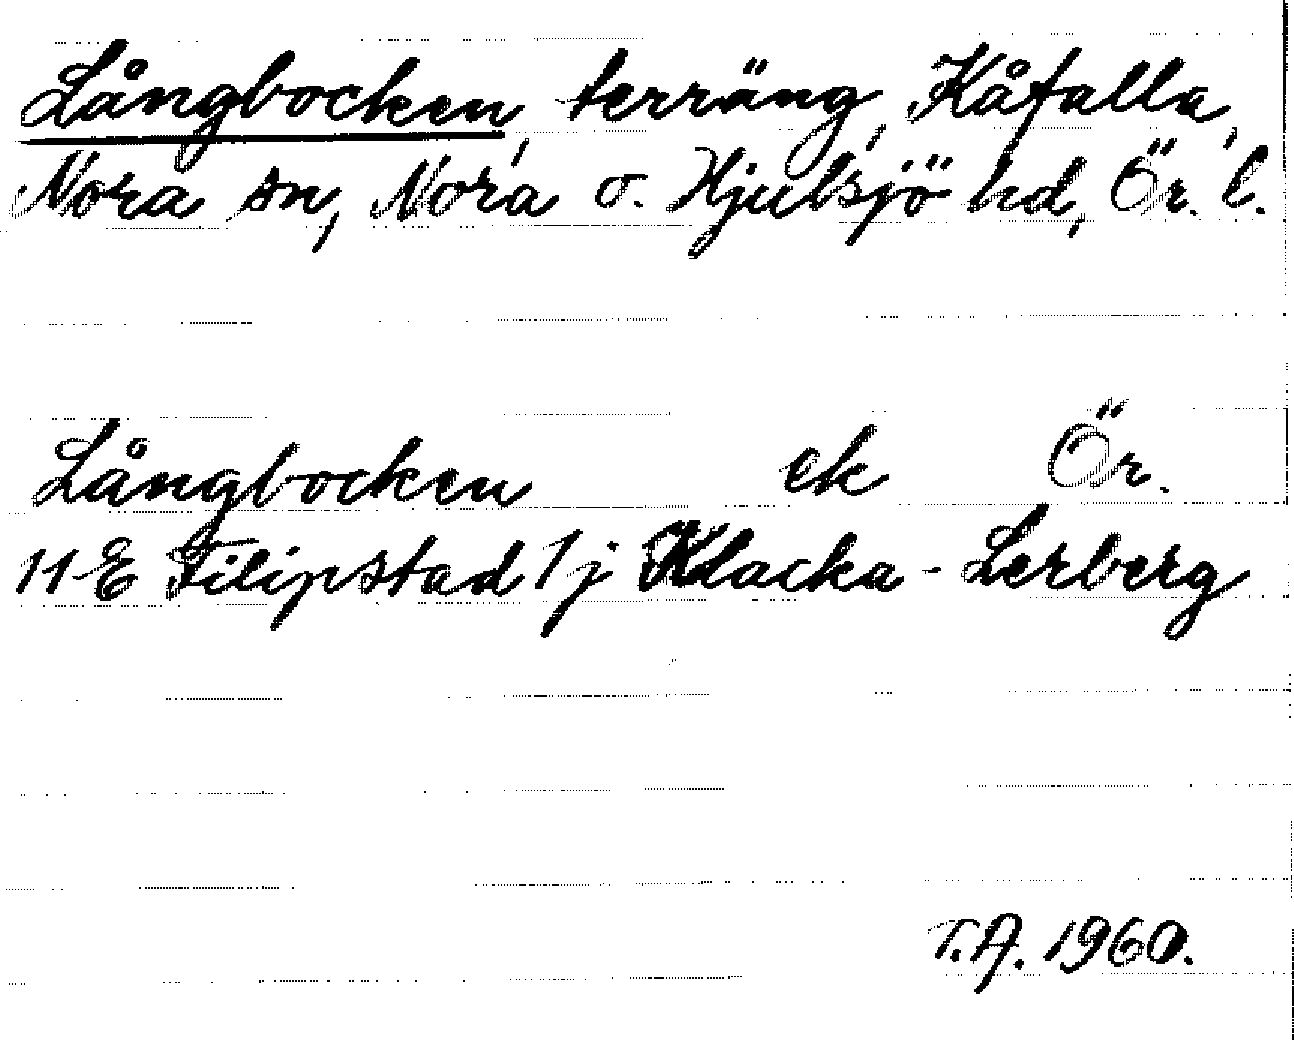 Långbocken, terräng, Kåfalla,
Nora sn, Nora o. Hjulsjö hd, Ör. l.
Långbocken ek Ör.
11 E Filipstad 1j Klacka-Lerberg
T.A. 1960.